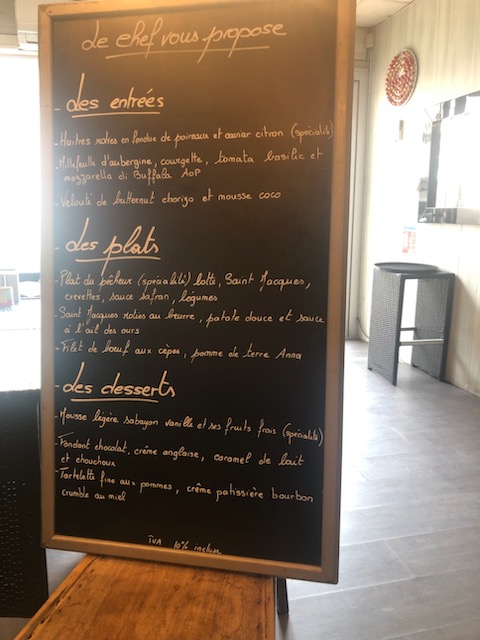 Le chef vous propose
des entrées
- Huîtres rôties en fondue de poireaux et caviar citron (spécialité)
- Millefeuille d'aubergine, courgette, tomata basilic et
mozzarella di Buffala AOP
- Velouté de butternut chorizo et mousse coco
- des plats
- Plat du pêcheur (spécialité) lotte, Saint Jacques,
crevettes, sauce safran, légumes
- Saint Jacques roties au beurre, patate douce et sauce
à l'ail des ours
- Filet de boeuf aux cèpes, pomme de terre Anna
- des desserts
- Mousse légère sabayon vanille et ses fruits frais (spécialité)
- Fondant chocolat, crème anglaise, caramel de lait
et chouchoux
- Tartelette fine aux pommes, crème patissière bourbon
crumble au miel
TVA 10% incluse